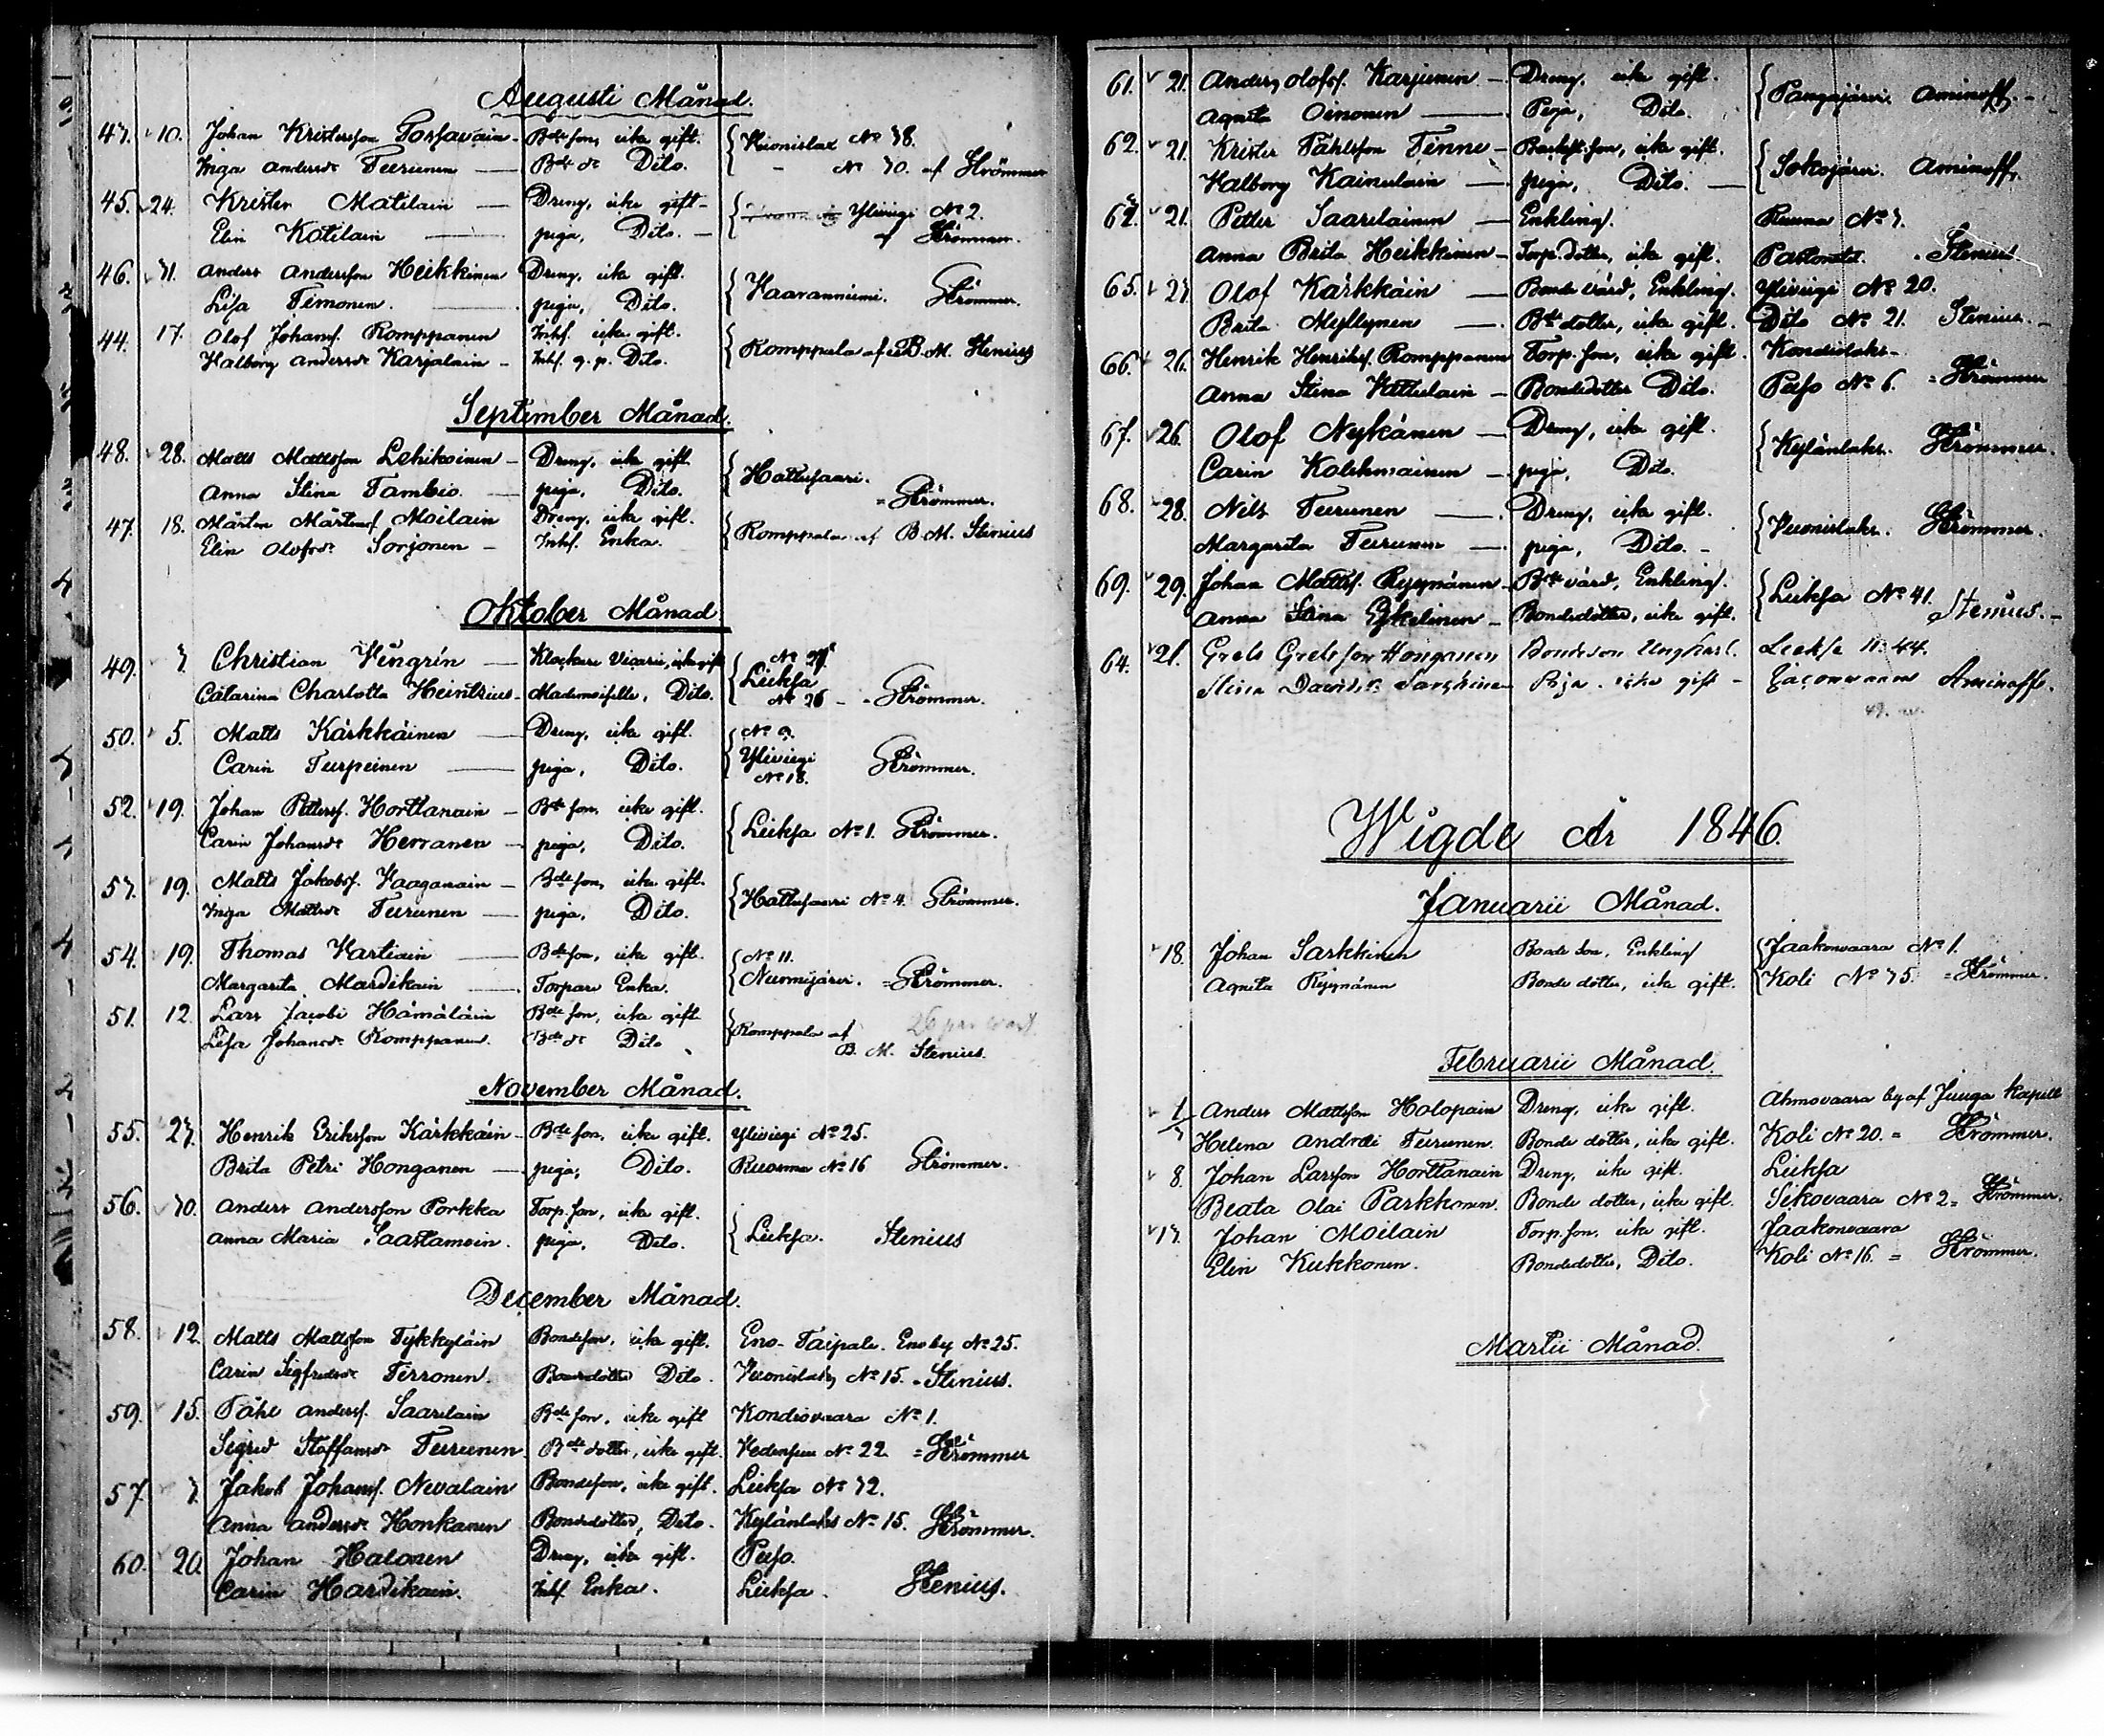 Augusti Månad.
47. 10. Johan Kristersson Torsavain - Bde son, icke gift. Vuonislax No 38.
Inga Andersdr Teerunen Bde dr Dito. No 30. af Strömmer
45. 24. Krister Matilain Dreng, icke gift Yliviegi No 2.
Elin Kotilain piga, Dito. af Strömmer.
46. 31. Anders Andersson Heikkinen Dreng, icke gift. Vaaranniemi. Strömmer.
Lisa Timonen. piga, Dito.
44. 17. Olof Johanss. Romppanen Inhs. icke gift. Romppala af B. M. Stenius
Valborg Andersdr Karjalain Inhs. q. p. Dito.
September Månad.
48. 28. Matts Mattsson Lehikoinen Dreng, icke gift Hattusaari.
Anna Stina Tambio. piga, Dito. = Strömmer.
47. 18. Mårten Mårtenss. Moilain Dreng, icke gift. Romppala af B. M. Stenius
Elin Olofsdr Sorjonen Inhs. Enka.
Oktober Månad
49. 3. Christian Vengrin Klockare Vicarie, icke gift No 27
Lieksa
Catarina Charlotta Heintzius Mademoiselle, Dito. No 26 - Strömmer.
50. 5. Matts Kärkkäinen Dreng, icke gift. No 9.
Yliviegi Strömmer.
Carin Turpeinen piga, Dito. No 18.
52. 19. Johan Petterss. Horttanain Bde son, icke gift. Lieksa No 1. Strömmer.
Carin Johansdr Herranen piga, Dito.
53. 19. Matts Jakobss. Vaaganain Bde son, icke gift. Hattusaari No 4. Strömmer.
Inga Mattsdr Teerunen piga, Dito.
54. 19. Thomas Vartiain Bde son, icke gift. No 11.
Margareta Mardikain Torpare Enka. Nurmijärvi. = Strömmer.
51. 12. Lars Jacobi Hämäläin Bde son, icke gift Romppala af
Lisa Johansdr Romppanen. Bde dr Dito B. M. Stenius.
November Månad.
55. 23. Henrik Eriksson Kärkkäin Bde son, icke gift. Yliviegi No 25.
Brita Petri Honganen piga, Dito. Ruunna No 16 Strömmer.
56. 30. Anders Andersson Porkka Torp. son, icke gift. Lieksa. Stenius
Anna Maria Saastamoin. piga, Dito.
December Månad.
58. 12. Matts Mattsson Tykkyläin Bondeson, icke gift. Eno-Taipale. Eno by No 25.
Carin Sigfredsdr Terronen. Bondedotter Dito. Vuonislaks No 15. - Stenius.
59. 15. Påhl Anderss. Saarelain Bde son, icke gift Kondiovaara No 1.
Sigrid Staffansdr Teerunen Bde dotter, icke gift. Vedensuu No 22 = Strömmer
57. 3. Jakob Johanss. Nevalain Bondeson, icke gift. Lieksa No 32.
Anna Andersdr Honkanen Bondedotter, Dito. Kylänlaks No 15. Strömmer.
60. 20. Johan Halonen Dreng, icke gift. Puso.
Carin Hardikain. Inhs. Enka. Lieksa. Stenius.
61. 21. Anders Olofss. Karjunen Dreng, icke gift. Pangajärvi. Aminoff.
Agneta Oinonen Piga, Dito.
62. 21. Krister Påhlsson Tenne icke gift. Sokojärvi. Aminoff.
Valborg Kainulain piga, Dito.
63. 21. Petter Saarelainen Enkling. Ruuna No 3.
Anna Brita Heikkinen Torp. dotter, icke gift. Pastoratet. Stenius
65. 23. Olof Kärkkäin Bonde värd, Enkling. Yliviegi No 20.
Brita Myllynen Bde dotter, icke gift. Dito No 21. Stenius.
66. 26. Henrik Henrikss. Romppanen Torp. son, icke gift. Kondiolaks
Anna Stina Kettulain Bondedotter Dito. Puso No 6. = Strömmer
67. 26. Olof Nykänen Dreng, icke gift. Kylänlaks. Strömmer.
Carin Kolehmainen piga, Dito.
68. 28. Nils Teerunen Dreng, icke gift. Vuonislaks. Strömmer.
Margareta Teerunen piga, Dito.
69. 29. Johan Mattss. Ryynänen Bde värd, Enkling. Lieksa No 41.
Anna Stina Eskelinen Bondedotter, icke gift. Stenius.
64. 21. Grels Grelsson Honganen Bondeson Ungkarl. Lieksa N: 44.
Stina Davidsdr Sarkkinen Piga icke gift Jacomvaara Aminoff.
Wigde År 1846.
Januarii Månad.
18. Johan Sarkkinen Bonde Son, Enkling Jaakonvaara No 1.
Agneta Ryynänen Bonde dotter, icke gift. Koli No 35. = Strömmer.
Februarii Månad.
1. Anders Mattsson Holopain Dreng, icke gift. Ahmovaara by af Juuga Kapell
3 Helena Andreæ Teerunen. Bonde dotter, icke gift. Koli No 20. = Strömmer.
8. Johan Larsson Horttanain Dreng, icke gift. Lieksa
Beata Olai Parkkonen. Bonde dotter, icke gift. Sikovaara No 2 = Strömmer.
13. Johan Moilain Torp. son, icke gift. Jaakonvaara
Elin Kukkonen. Bondedotter, Dito. Koli No 16. = Strömmer.
Martii Månad.